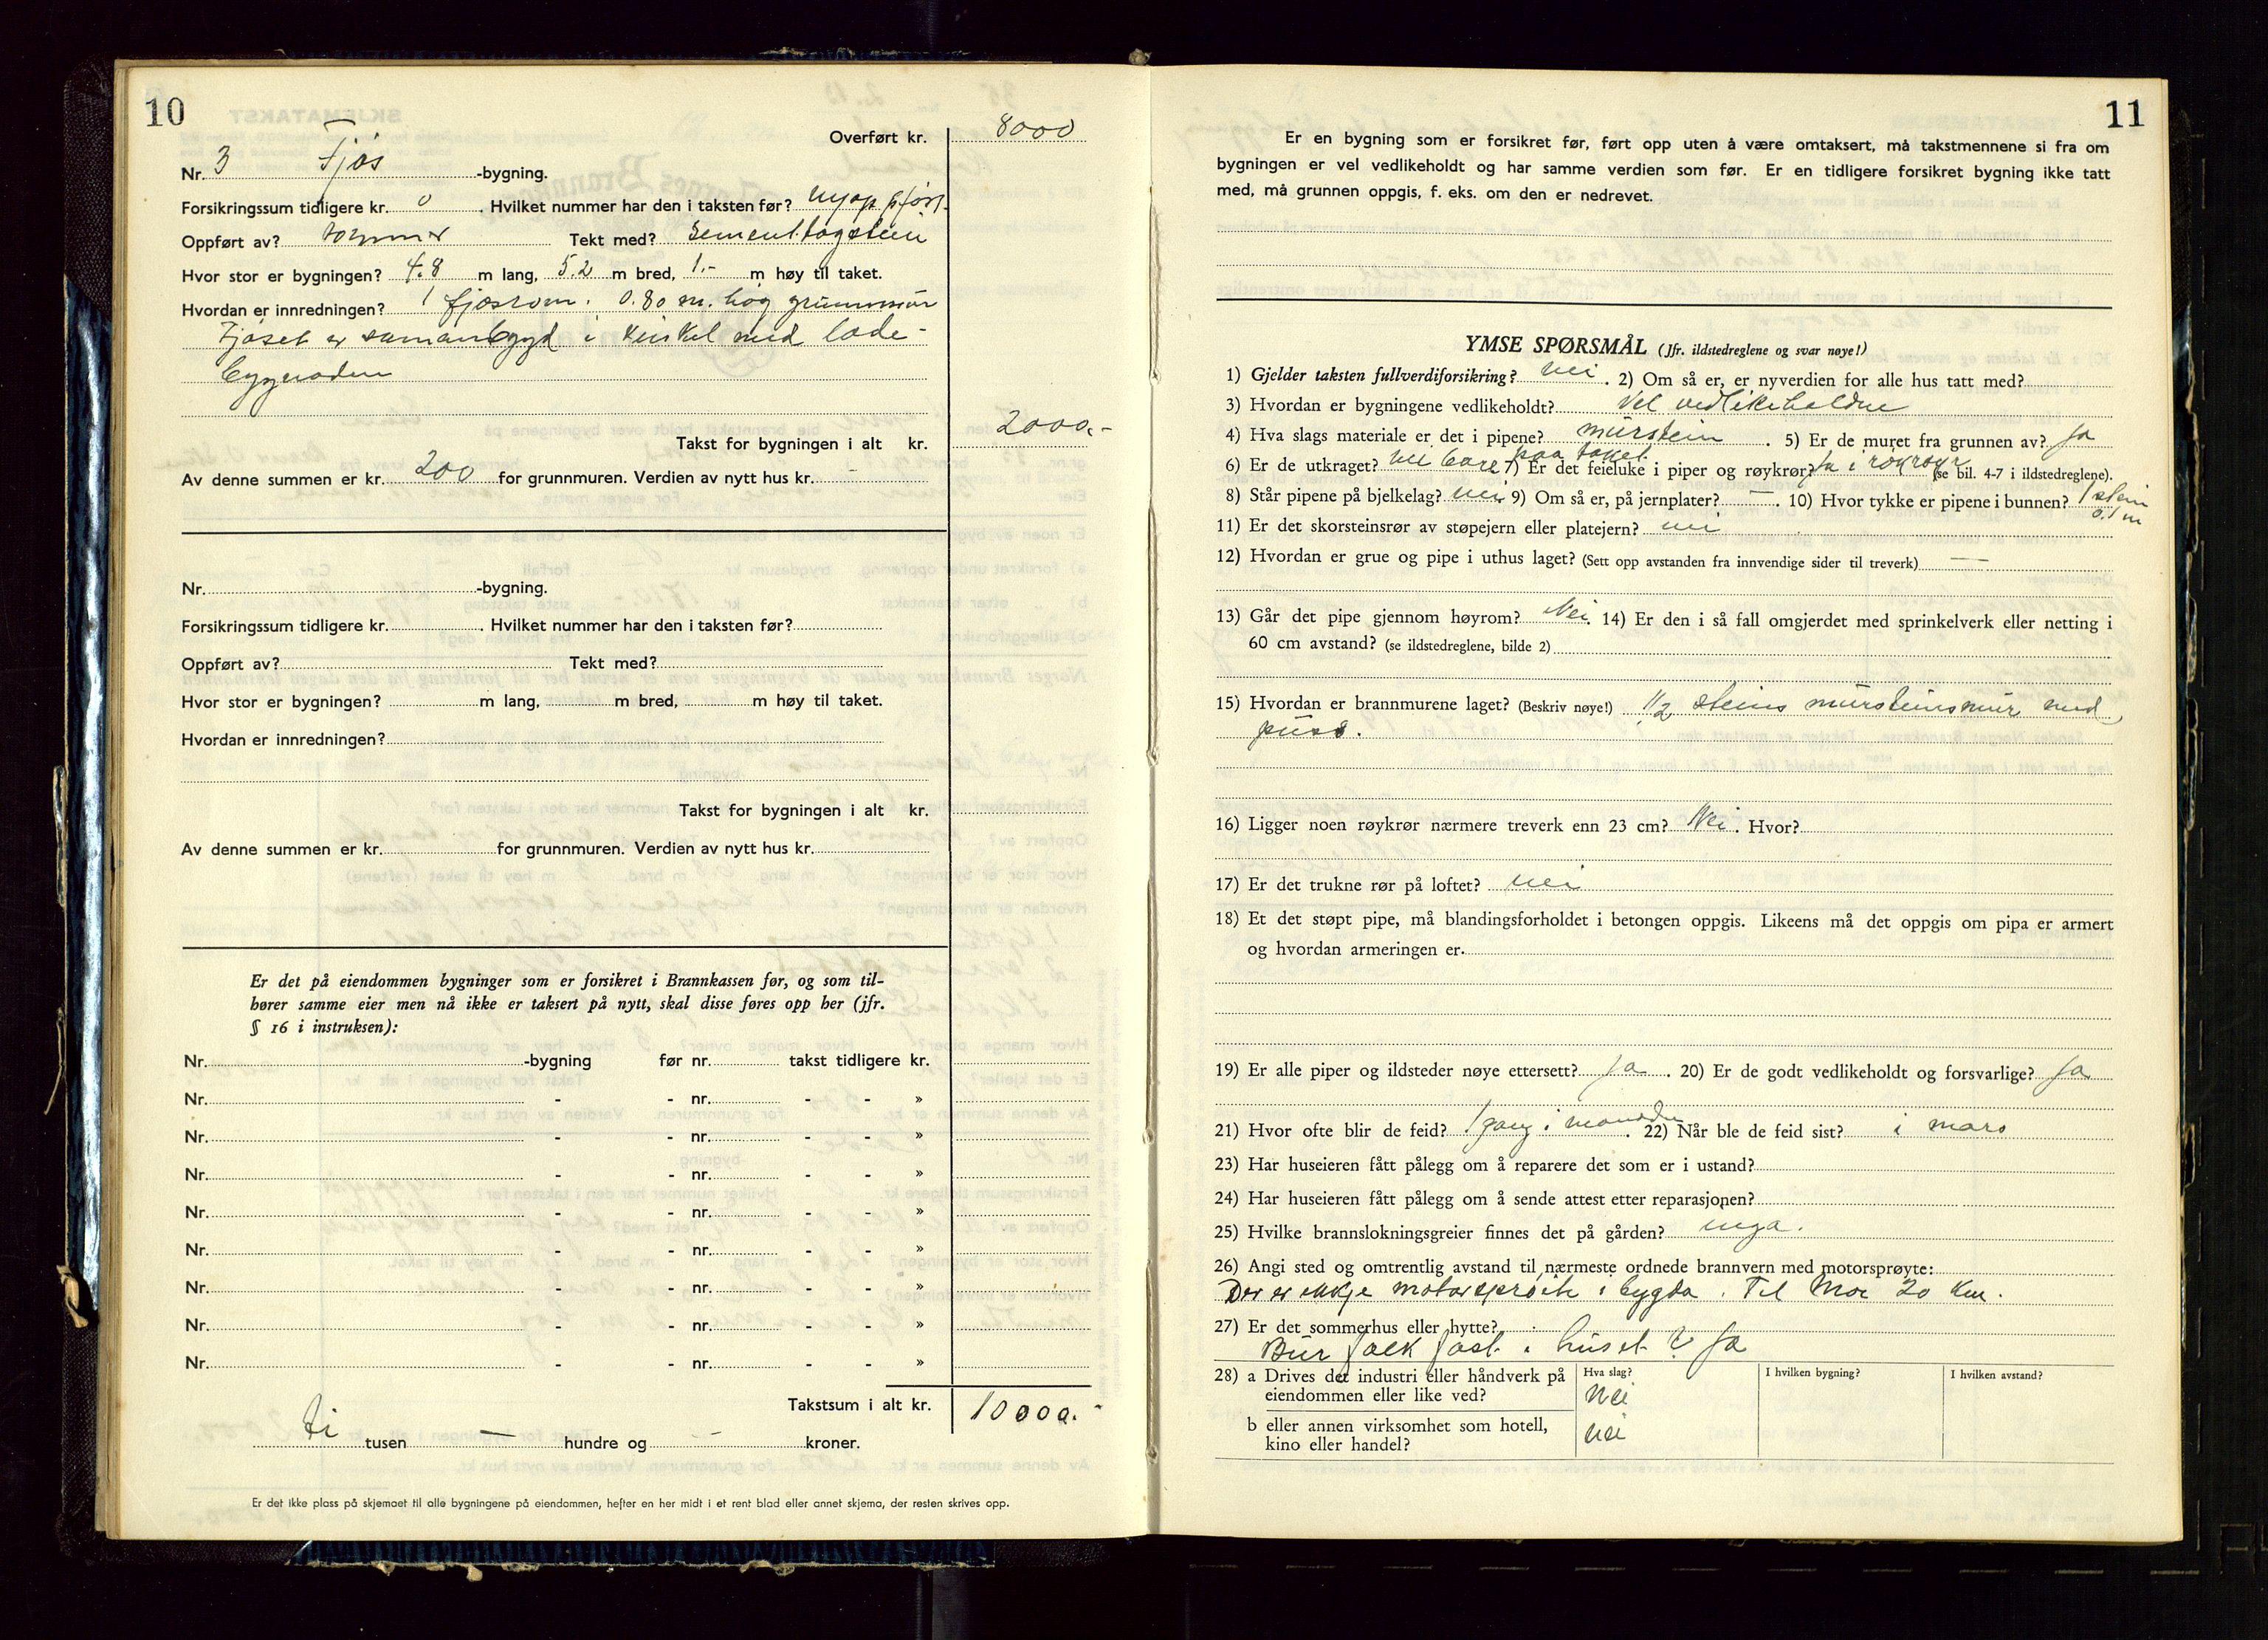 10
Overført kr. 8000
Nr. 3 Fjøs -bygning.
Forsikringssum tidligere kr. 0 . Hvilket nummer har den i taksten før? nyoppført
Oppført av? tømmer Tekt med? Sementtagstein
Hvor stor er bygningen? 4.8 m lang, 5.2 m bred, 1.- m høy til taket.
Hvordan er innredningen? 1 fjøsrom. 0.80 m. høg grunnmur
Fjøset er samanbygd i vinkel med løde-
bygnaden
Takst for bygningen i alt kr. 2000.-
Av denne summen er kr. 200 for grunnmuren. Verdien av nytt hus kr. -
Nr. -bygning.
Forsikringssum tidligere kr. . Hvilket nummer har den i taksten før?
Oppført av? Tekt med?
Hvor stor er bygningen? m lang, m bred, m høy til taket.
Hvordan er innredningen?
Takst for bygningen i alt kr.
Av denne summen er kr. for grunnmuren. Verdien av nytt hus kr.
Er det på eiendommen bygninger som er forsikret i Brannkassen før, og som til-
hører samme eier men nå ikke er taksert på nytt, skal disse føres opp her (jfr.
§ 16 i instruksen):
Nr. -bygning før nr. takst tidligere kr.
Nr. - - nr. - - »
Nr. - - nr. - - »
Nr. - - nr. - - »
Nr. - - nr. - - »
Nr. - - nr. - - »
Nr. - - nr. - - »
Nr. - - nr. - - »
Nr. - - nr. - - »
Takstsum i alt kr. 10000.-
ti tusen — hundre og — kroner.
Er det ikke plass på skjemaet til alle bygningene på eiendommen, hefter en her midt i et rent blad eller annet skjema, der resten skrives opp.
11
Er en bygning som er forsikret før, ført opp uten å være omtaksert, må takstmennene si fra om
bygningen er vel vedlikeholdt og har samme verdien som før. Er en tidligere forsikret bygning ikke tatt
med, må grunnen oppgis, f. eks. om den er nedrevet.
YMSE SPØRSMÅL (Jfr. ildstedreglene og svar nøye!)
1) Gjelder taksten fullverdiforsikring? nei . 2) Om så er, er nyverdien for alle hus tatt med?
3) Hvordan er bygningene vedlikeholdt? Vel vedlikeholdne
4) Hva slags materiale er det i pipene? murstein . 5) Er de muret fra grunnen av? ja
6) Er de utkraget? nei bare paa taket 7) Er det feieluke i piper og røykrør? Ja i røykrøyr (se bil. 4-7 i ildstedreglene).
8) Står pipene på bjelkelag? nei 9) Om så er, på jernplater? — . 10) Hvor tykke er pipene i bunnen? 1 stein
11) Er det skorsteinsrør av støpejern eller platejern? nei
12) Hvordan er grue og pipe i uthus laget? (Sett opp avstanden fra innvendige sider til treverk) —
13) Går det pipe gjennom høyrom? Nei. 14) Er den i så fall omgjerdet med sprinkelverk eller netting i
60 cm avstand? (se ildstedreglene, bilde 2)
15) Hvordan er brannmurene laget? (Beskriv nøye!) 1/2 steins mursteinsmur med
puss.
16) Ligger noen røykrør nærmere treverk enn 23 cm? Nei . Hvor?
17) Er det trukne rør på loftet? nei
18) Et det støpt pipe, må blandingsforholdet i betongen oppgis. Likeens må det oppgis om pipa er armert
og hvordan armeringen er.
19) Er alle piper og ildsteder nøye ettersett? Ja . 20) Er de godt vedlikeholdt og forsvarlige? Ja
21) Hvor ofte blir de feid? 1 gang i månaden . 22) Når ble de feid sist? i mars
23) Har huseieren fått pålegg om å reparere det som er i ustand?
24) Har huseieren fått pålegg om å sende attest etter reparasjonen?
25) Hvilke brannslokningsgreier finnes det på gården? inga.
26) Angi sted og omtrentlig avstand til nærmeste ordnede brannvern med motorsprøyte:
Der er ikkje motorsprøite i bygda. Til Moi 20 km.
27) Er det sommerhus eller hytte?
Bur folk fast i huset? Ja
28) a Drives det industri eller håndverk på
eiendommen eller like ved?
Hva slag? I hvilken bygning? I hvilken avstand?
Nei
b eller annen virksomhet som hotell,
kino eller handel?
nei